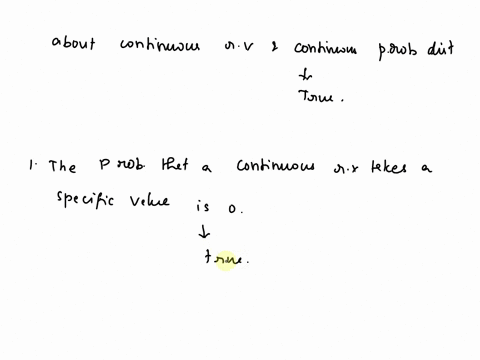 about continuous r.v & continuous prob dist
↓
True.
1. The Prob that a continuous r.v takes a
specific value is 0.
↓
true.